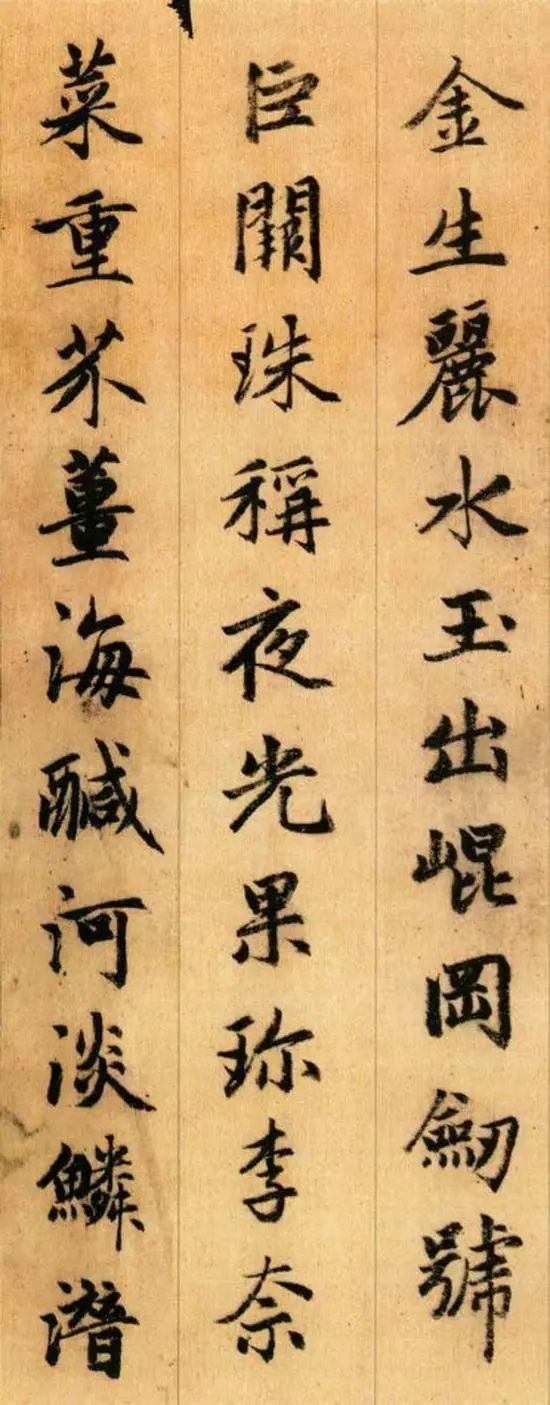 金生麗水玉出崐岡劒號
巨闕珠稱夜光果珎李柰
菜重芥薑海醎河淡鱗潛